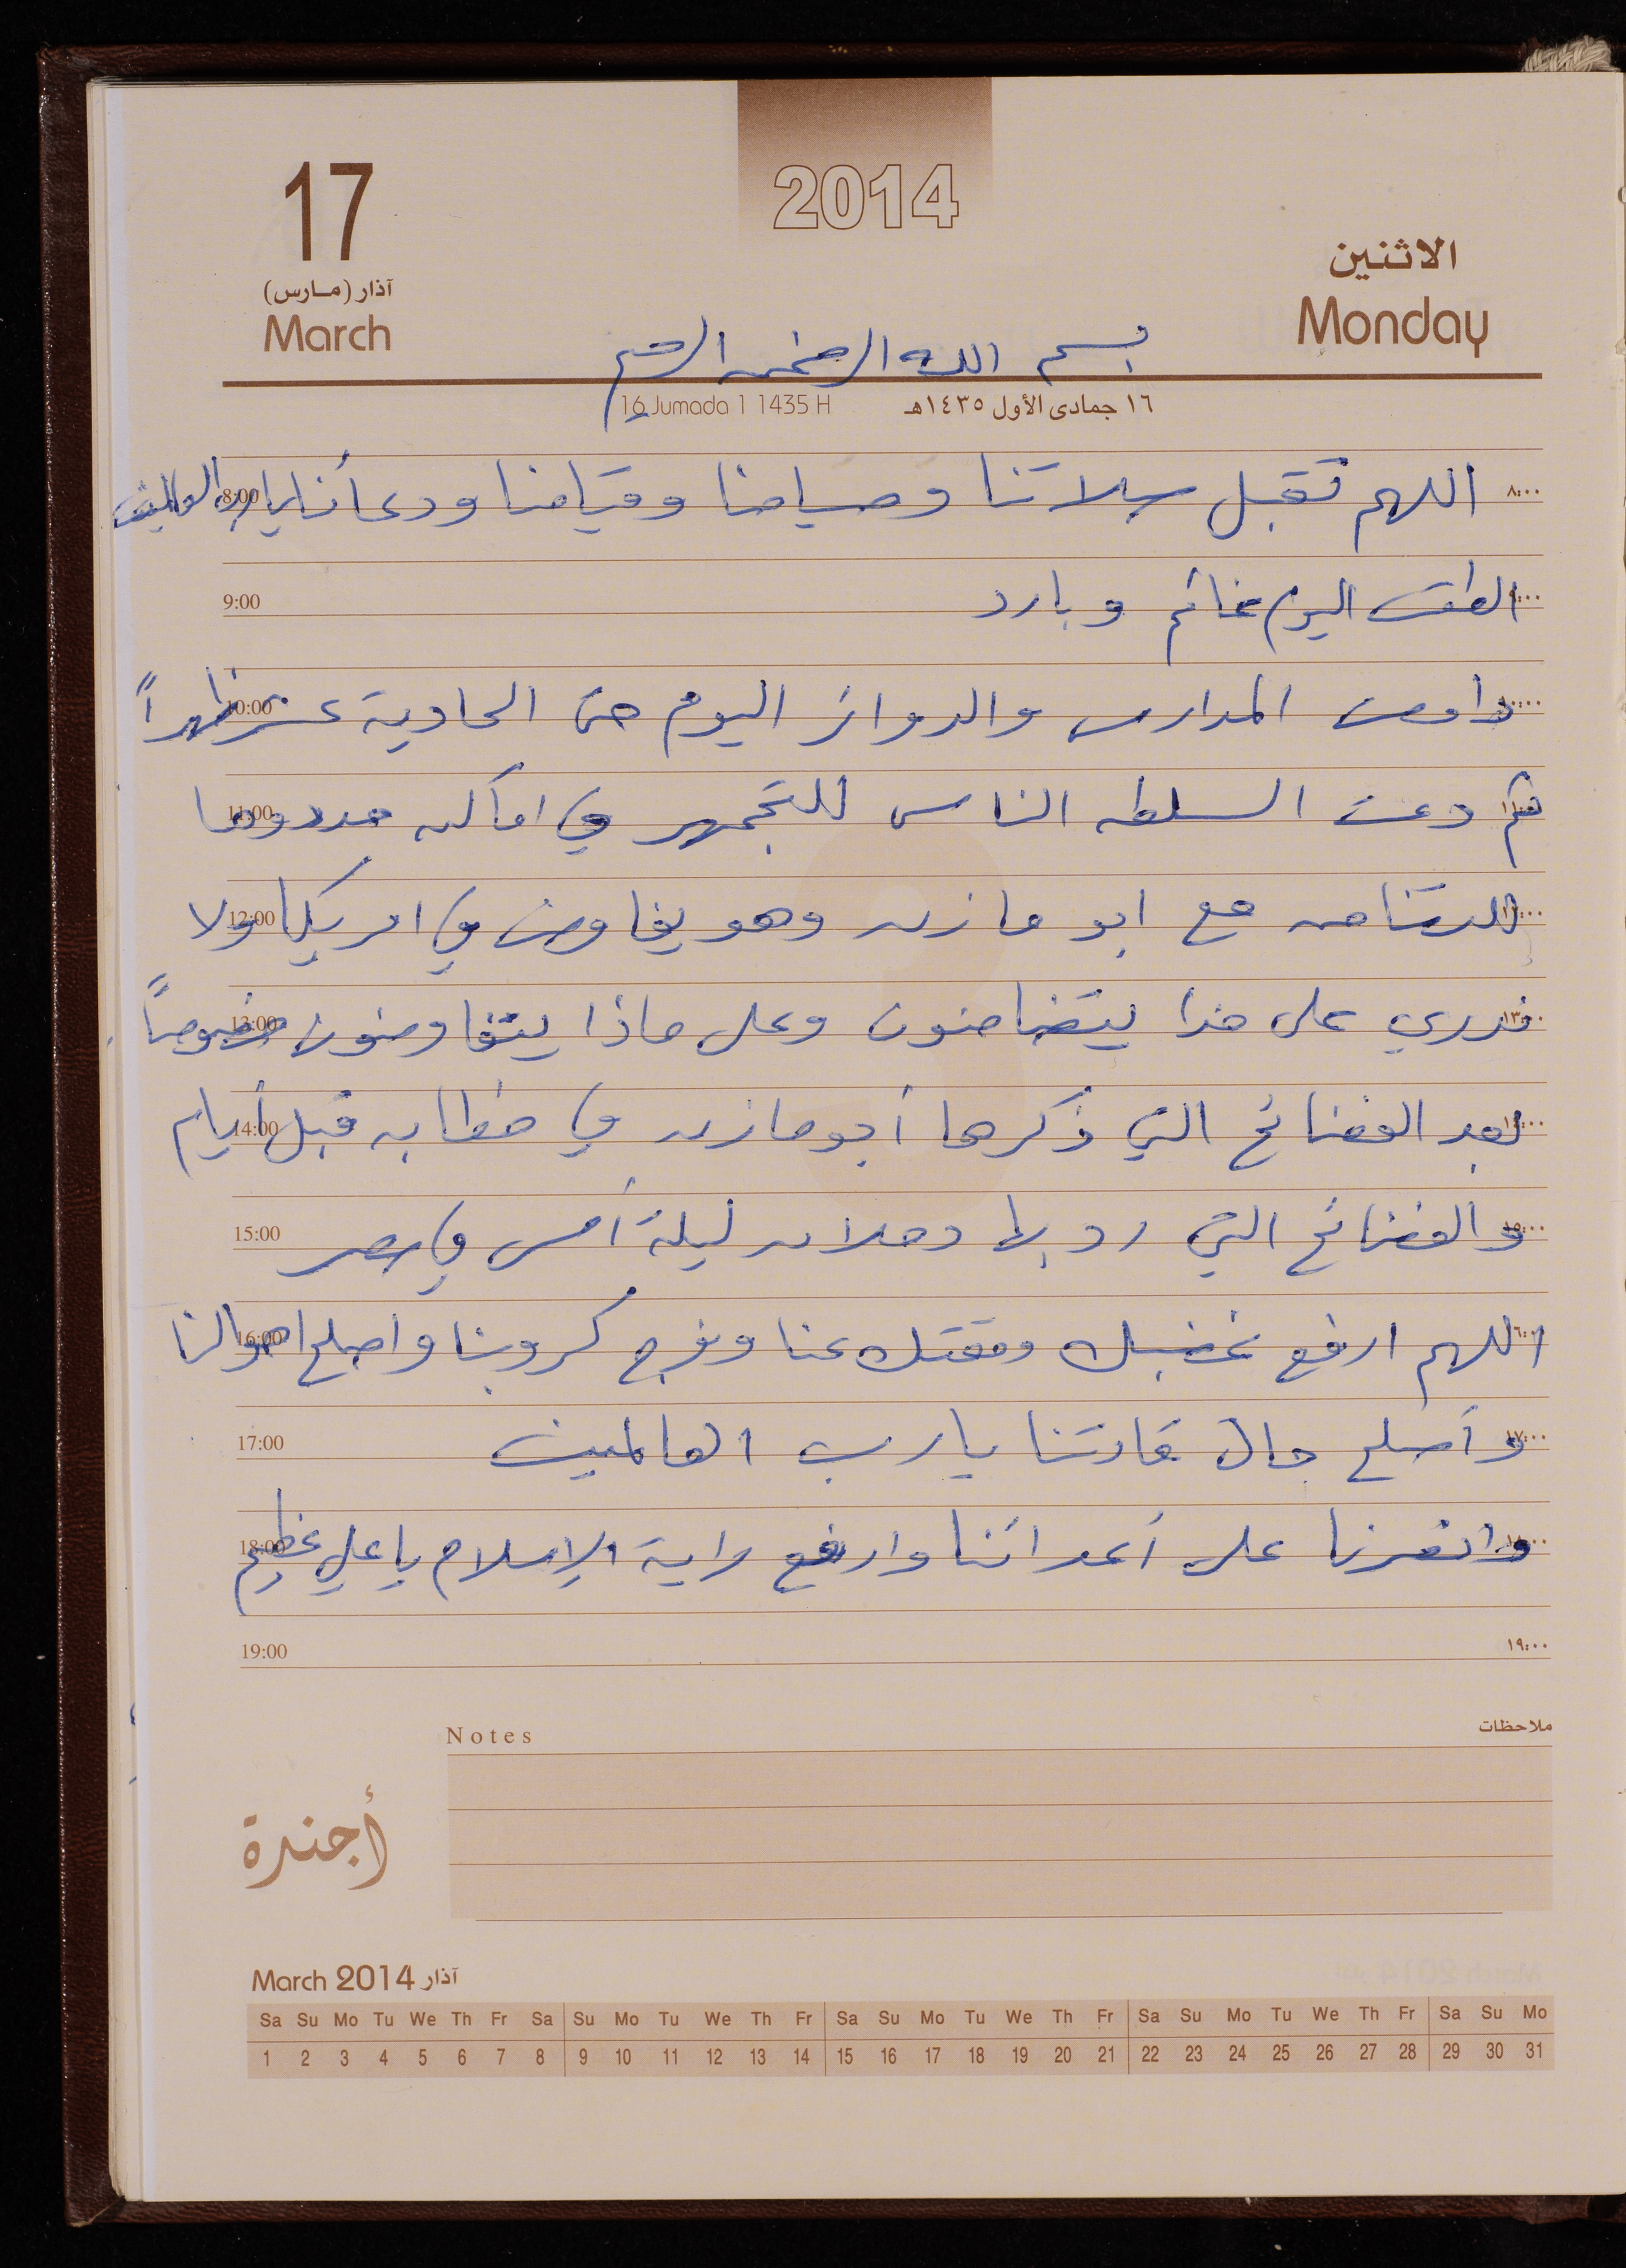 2014
17
آذار (مارس)
March
الاثنين
Monday
بسم الله الرحمن الرحيم
16 Jumada 1 1435 H ١٦ جمادى الأول ١٤٣٥هـ
8:00 اللهم تقبل صلاتنا وصيامنا وقيامنا ودعأنا يارب العالمين ٨:٠٠
9:00 الطقس اليوم غائم وبارد ٩:٠٠
10:00 داومت المدارس والدوائر اليوم حتى الحادية عشر ظهراً ١٠:٠٠
11:00 ثم دعت السلطه الناس للتجمهر في اماكن حددوها ١١:٠٠
12:00 للتضامن مع ابو مازن وهو يفاوض في امريكا ولا ١٢:٠٠
13:00 ندري على هذا يتضامنون وعلى ماذا يتفاوضون خصوصاً ١٣:٠٠
14:00 بعد الفضائح التي ذكرها أبو مازن في خطابه قبل أيام ١٤:٠٠
15:00 والفضائح التي رد بها دحلان ليلة أمس في مصر ١٥:٠٠
16:00 اللهم ارفع غضبك ومقتك عنا وفرج كروبنا واصلح احوالنا ١٦:٠٠
17:00 وأصلح حال قادتنا يارب العالمين ١٧:٠٠
18:00 وانصرنا على أعدائنا وارفع راية الإسلام يا علي عظيم ١٨:٠٠
19:00 ١٩:٠٠
Notes ملاحظات
أجندة
March 2014 آذار
Sa Su Mo Tu We Th Fr Sa Su Mo Tu We Th Fr Sa Su Mo Tu We Th Fr Sa Su Mo Tu We Th Fr Sa Su Mo
1 2 3 4 5 6 7 8 9 10 11 12 13 14 15 16 17 18 19 20 21 22 23 24 25 26 27 28 29 30 31